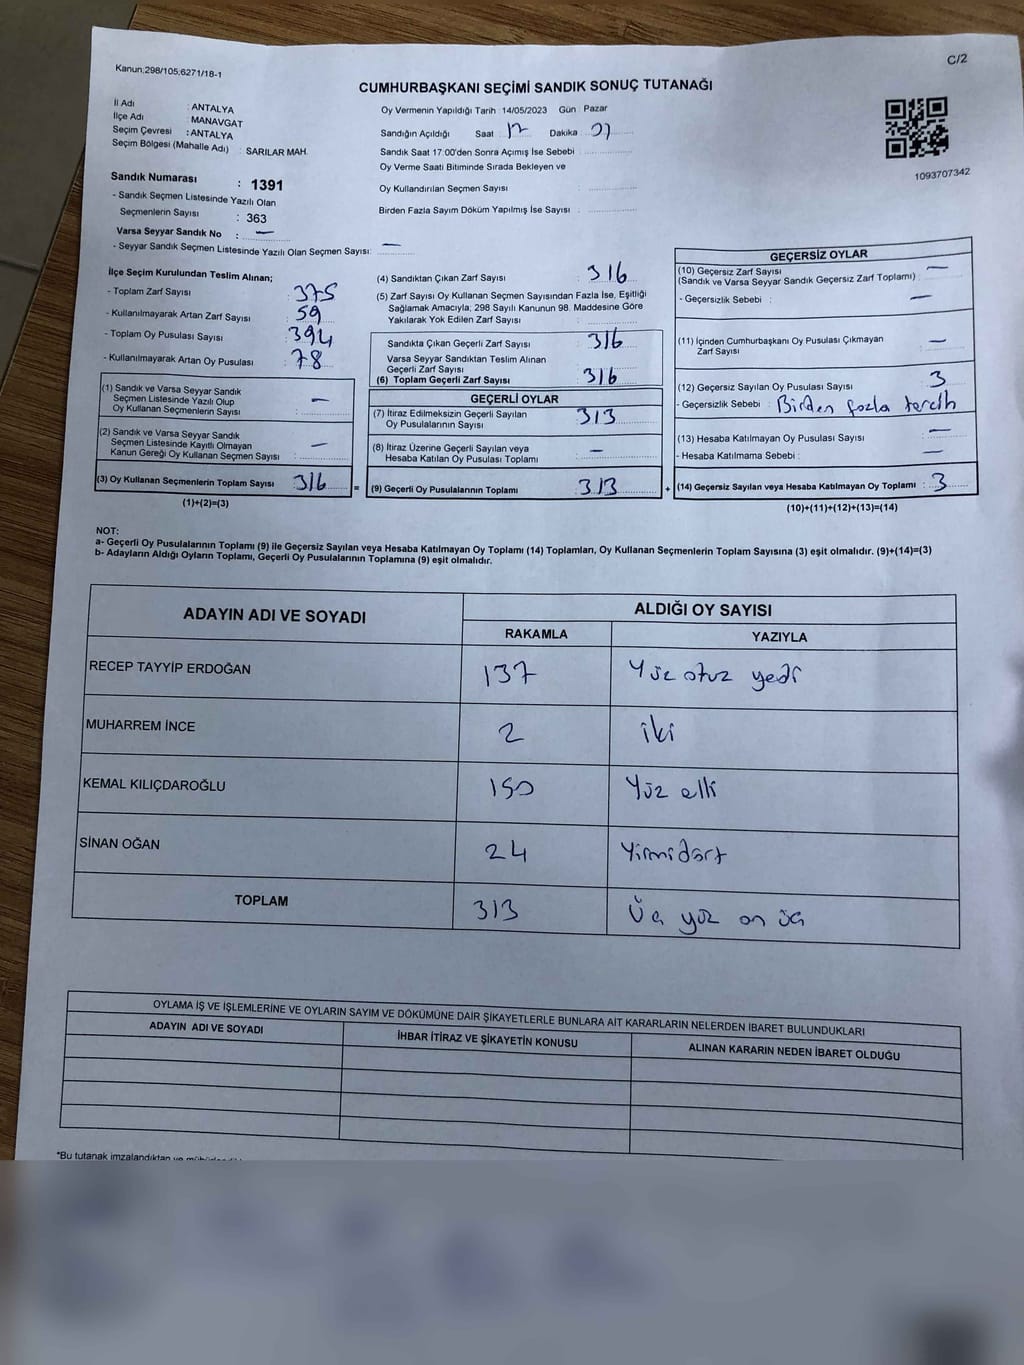 Kanun;298/105;6271/18-1
C/2
CUMHURBAŞKANI SEÇİMİ SANDIK SONUÇ TUTANAĞI
İl Adı : ANTALYA
İlçe Adı : MANAVGAT
Seçim Çevresi : ANTALYA
Seçim Bölgesi (Mahalle Adı) : SARILAR MAH.
Sandık Numarası : 1391
- Sandık Seçmen Listesinde Yazılı Olan
Seçmenlerin Sayısı : 363
Varsa Seyyar Sandık No : —
- Seyyar Sandık Seçmen Listesinde Yazılı Olan Seçmen Sayısı: —
Oy Vermenin Yapıldığı Tarih : 14/05/2023 Gün : Pazar
Sandığın Açıldığı Saat : 17 Dakika :
Sandık Saat 17:00'den Sonra Açımış İse Sebebi :
Oy Verme Saati Bitiminde Sırada Bekleyen ve
Oy Kullandırılan Seçmen Sayısı :
Birden Fazla Sayım Döküm Yapılmış İse Sayısı :
1093707342
İlçe Seçim Kurulundan Teslim Alınan;
- Toplam Zarf Sayısı : 375
- Kullanılmayarak Artan Zarf Sayısı : 59
- Toplam Oy Pusulası Sayısı : 394
- Kullanılmayarak Artan Oy Pusulası : 78
(1) Sandık ve Varsa Seyyar Sandık
Seçmen Listesinde Yazılı Olup
Oy Kullanan Seçmenlerin Sayısı : —
(2) Sandık ve Varsa Seyyar Sandık
Seçmen Listesinde Kayıtlı Olmayan
Kanun Gereği Oy Kullanan Seçmen Sayısı : —
(3) Oy Kullanan Seçmenlerin Toplam Sayısı : 316 =
(1)+(2)=(3)
(4) Sandıktan Çıkan Zarf Sayısı : 316
(5) Zarf Sayısı Oy Kullanan Seçmen Sayısından Fazla İse, Eşitliği
Sağlamak Amacıyla; 298 Sayılı Kanunun 98. Maddesine Göre
Yakılarak Yok Edilen Zarf Sayısı :
Sandıkta Çıkan Geçerli Zarf Sayısı : 316
Varsa Seyyar Sandıktan Teslim Alınan
Geçerli Zarf Sayısı :
(6) Toplam Geçerli Zarf Sayısı : 316
GEÇERLİ OYLAR
(7) İtiraz Edilmeksizin Geçerli Sayılan
Oy Pusulalarının Sayısı : 313
(8) İtiraz Üzerine Geçerli Sayılan veya
Hesaba Katılan Oy Pusulası Toplamı : —
(9) Geçerli Oy Pusulalarının Toplamı : 313 +
GEÇERSİZ OYLAR
(10) Geçersiz Zarf Sayısı : —
(Sandık ve Varsa Seyyar Sandık Geçersiz Zarf Toplamı)
- Geçersizlik Sebebi : —
(11) İçinden Cumhurbaşkanı Oy Pusulası Çıkmayan
Zarf Sayısı : —
(12) Geçersiz Sayılan Oy Pusulası Sayısı : 3
- Geçersizlik Sebebi : Birden fazla tercih
(13) Hesaba Katılmayan Oy Pusulası Sayısı : —
- Hesaba Katılmama Sebebi : —
(14) Geçersiz Sayılan veya Hesaba Katılmayan Oy Toplamı : 3
(10)+(11)+(12)+(13)=(14)
NOT:
a- Geçerli Oy Pusulalarının Toplamı (9) ile Geçersiz Sayılan veya Hesaba Katılmayan Oy Toplamı (14) Toplamları, Oy Kullanan Seçmenlerin Toplam Sayısına (3) eşit olmalıdır. (9)+(14)=(3)
b- Adayların Aldığı Oyların Toplamı, Geçerli Oy Pusulalarının Toplamına (9) eşit olmalıdır.
ADAYIN ADI VE SOYADI ALDIĞI OY SAYISI
RAKAMLA YAZIYLA
RECEP TAYYİP ERDOĞAN 137 Yüz otuz yedi
MUHARREM İNCE 2 iki
KEMAL KILIÇDAROĞLU 150 Yüz elli
SİNAN OĞAN 24 Yirmidört
TOPLAM 313 Üç yüz on üç
OYLAMA İŞ VE İŞLEMLERİNE VE OYLARIN SAYIM VE DÖKÜMÜNE DAİR ŞİKAYETLERLE BUNLARA AİT KARARLARIN NELERDEN İBARET BULUNDUKLARI
ADAYIN ADI VE SOYADI İHBAR İTİRAZ VE ŞİKAYETİN KONUSU ALINAN KARARIN NEDEN İBARET OLDUĞU
*Bu tutanak imzalandıktan ve